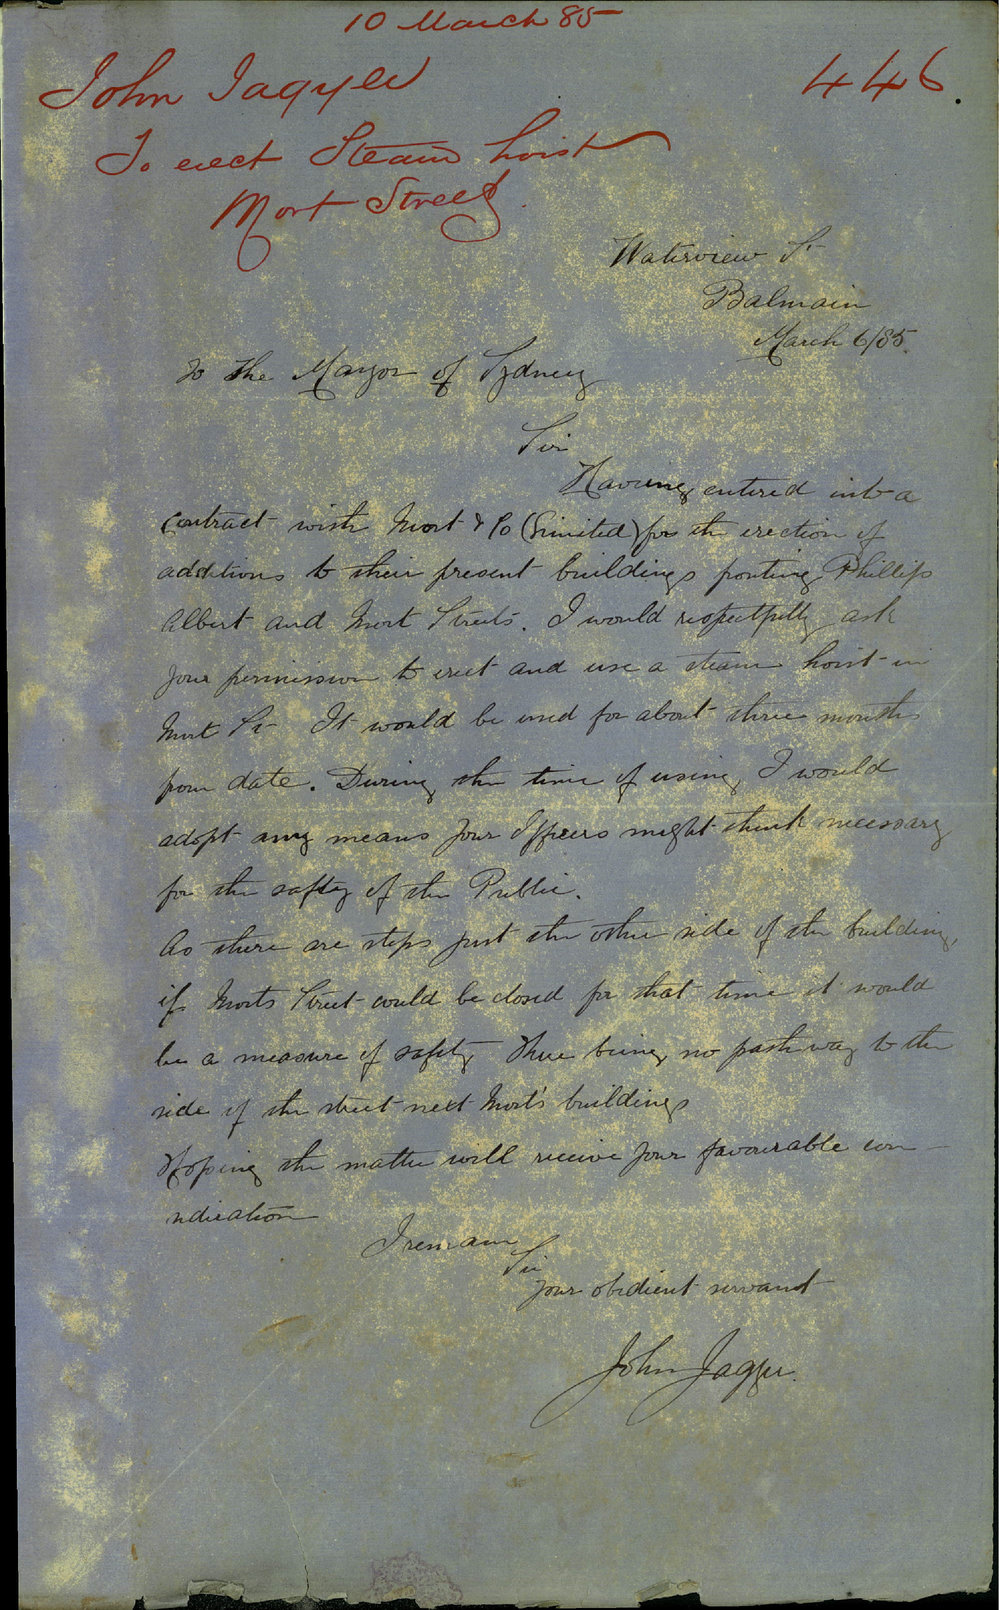 10 March 85
John Jagger
446.
To erect Steam hoist
Mort Street
Waterview St
Balmain
March 6/85
To the Mayor of Sydney
Sir
Having entered into a
Contract with Mort & Co (Limited) for the erection of
additions to their present buildings fronting Phillip
Albert and Mort Streets. I would respectfully ask
your permission to erect and use a steam hoist in
Mort St It would be used for about three months
from date. During the time of using, I would
adopt any means your Officers might think necessary
for the safty of the Public.
As there are steps just the other side of the building,
if Morts Street could be closed for that time it would
be a measure of safety there being no pathway to the
side of the street next Mort's buildings
Hoping the matter will receive your favourable con
sideration
I remain
Sir
your obedient servant
John Jagger.